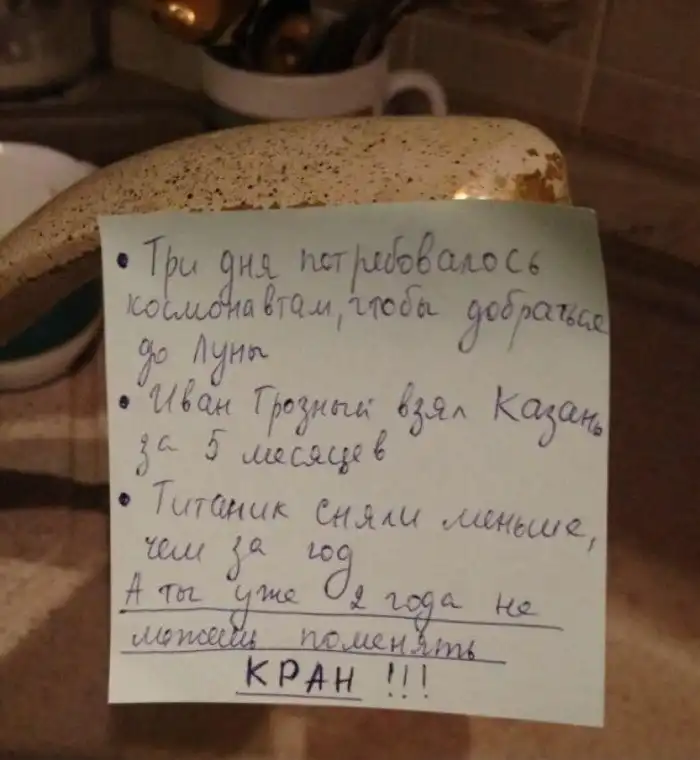 • Три дня потребовалось
космонавтам, чтобы добраться
до Луны
• Иван Грозный взял Казань
за 5 месяцев
• Титаник сняли меньше,
чем за год
А ты уже 2 года не
можешь поменять
КРАН !!!